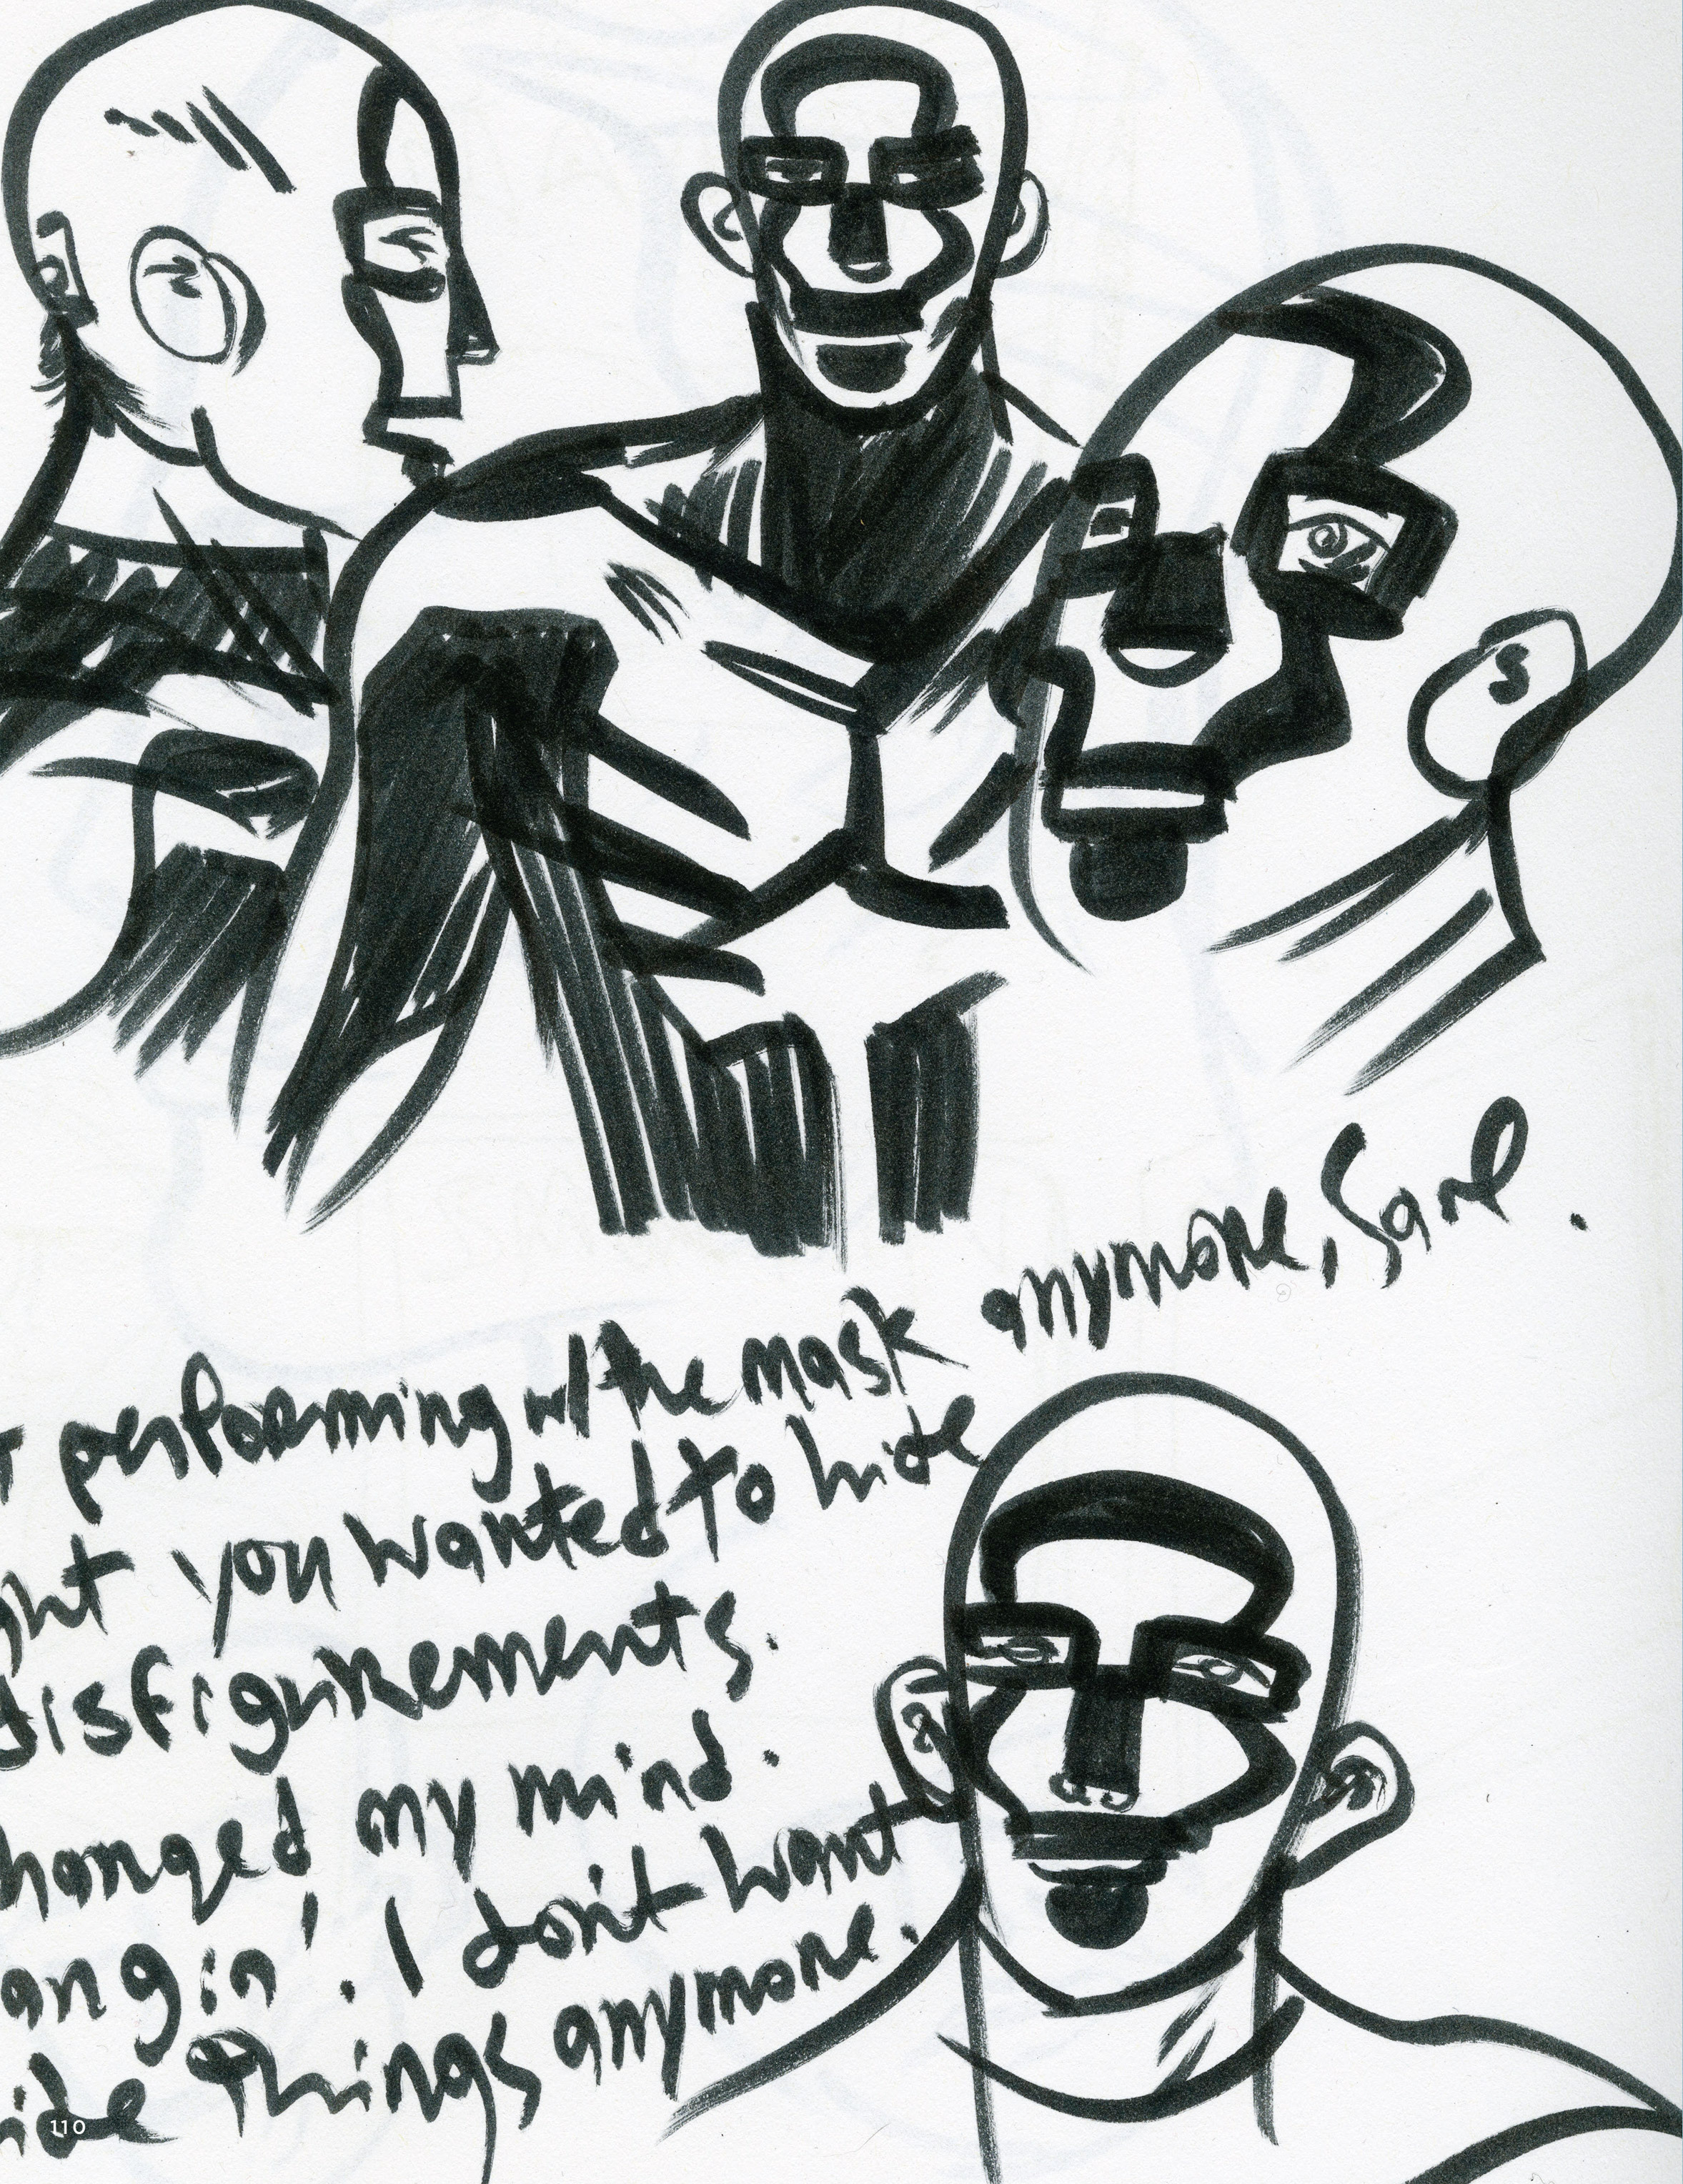 performing w/the mask anymore,
ght you wanted to hide
disfigurements.
hanged my mind.
angin'. I don't want
ide things anymore.
110